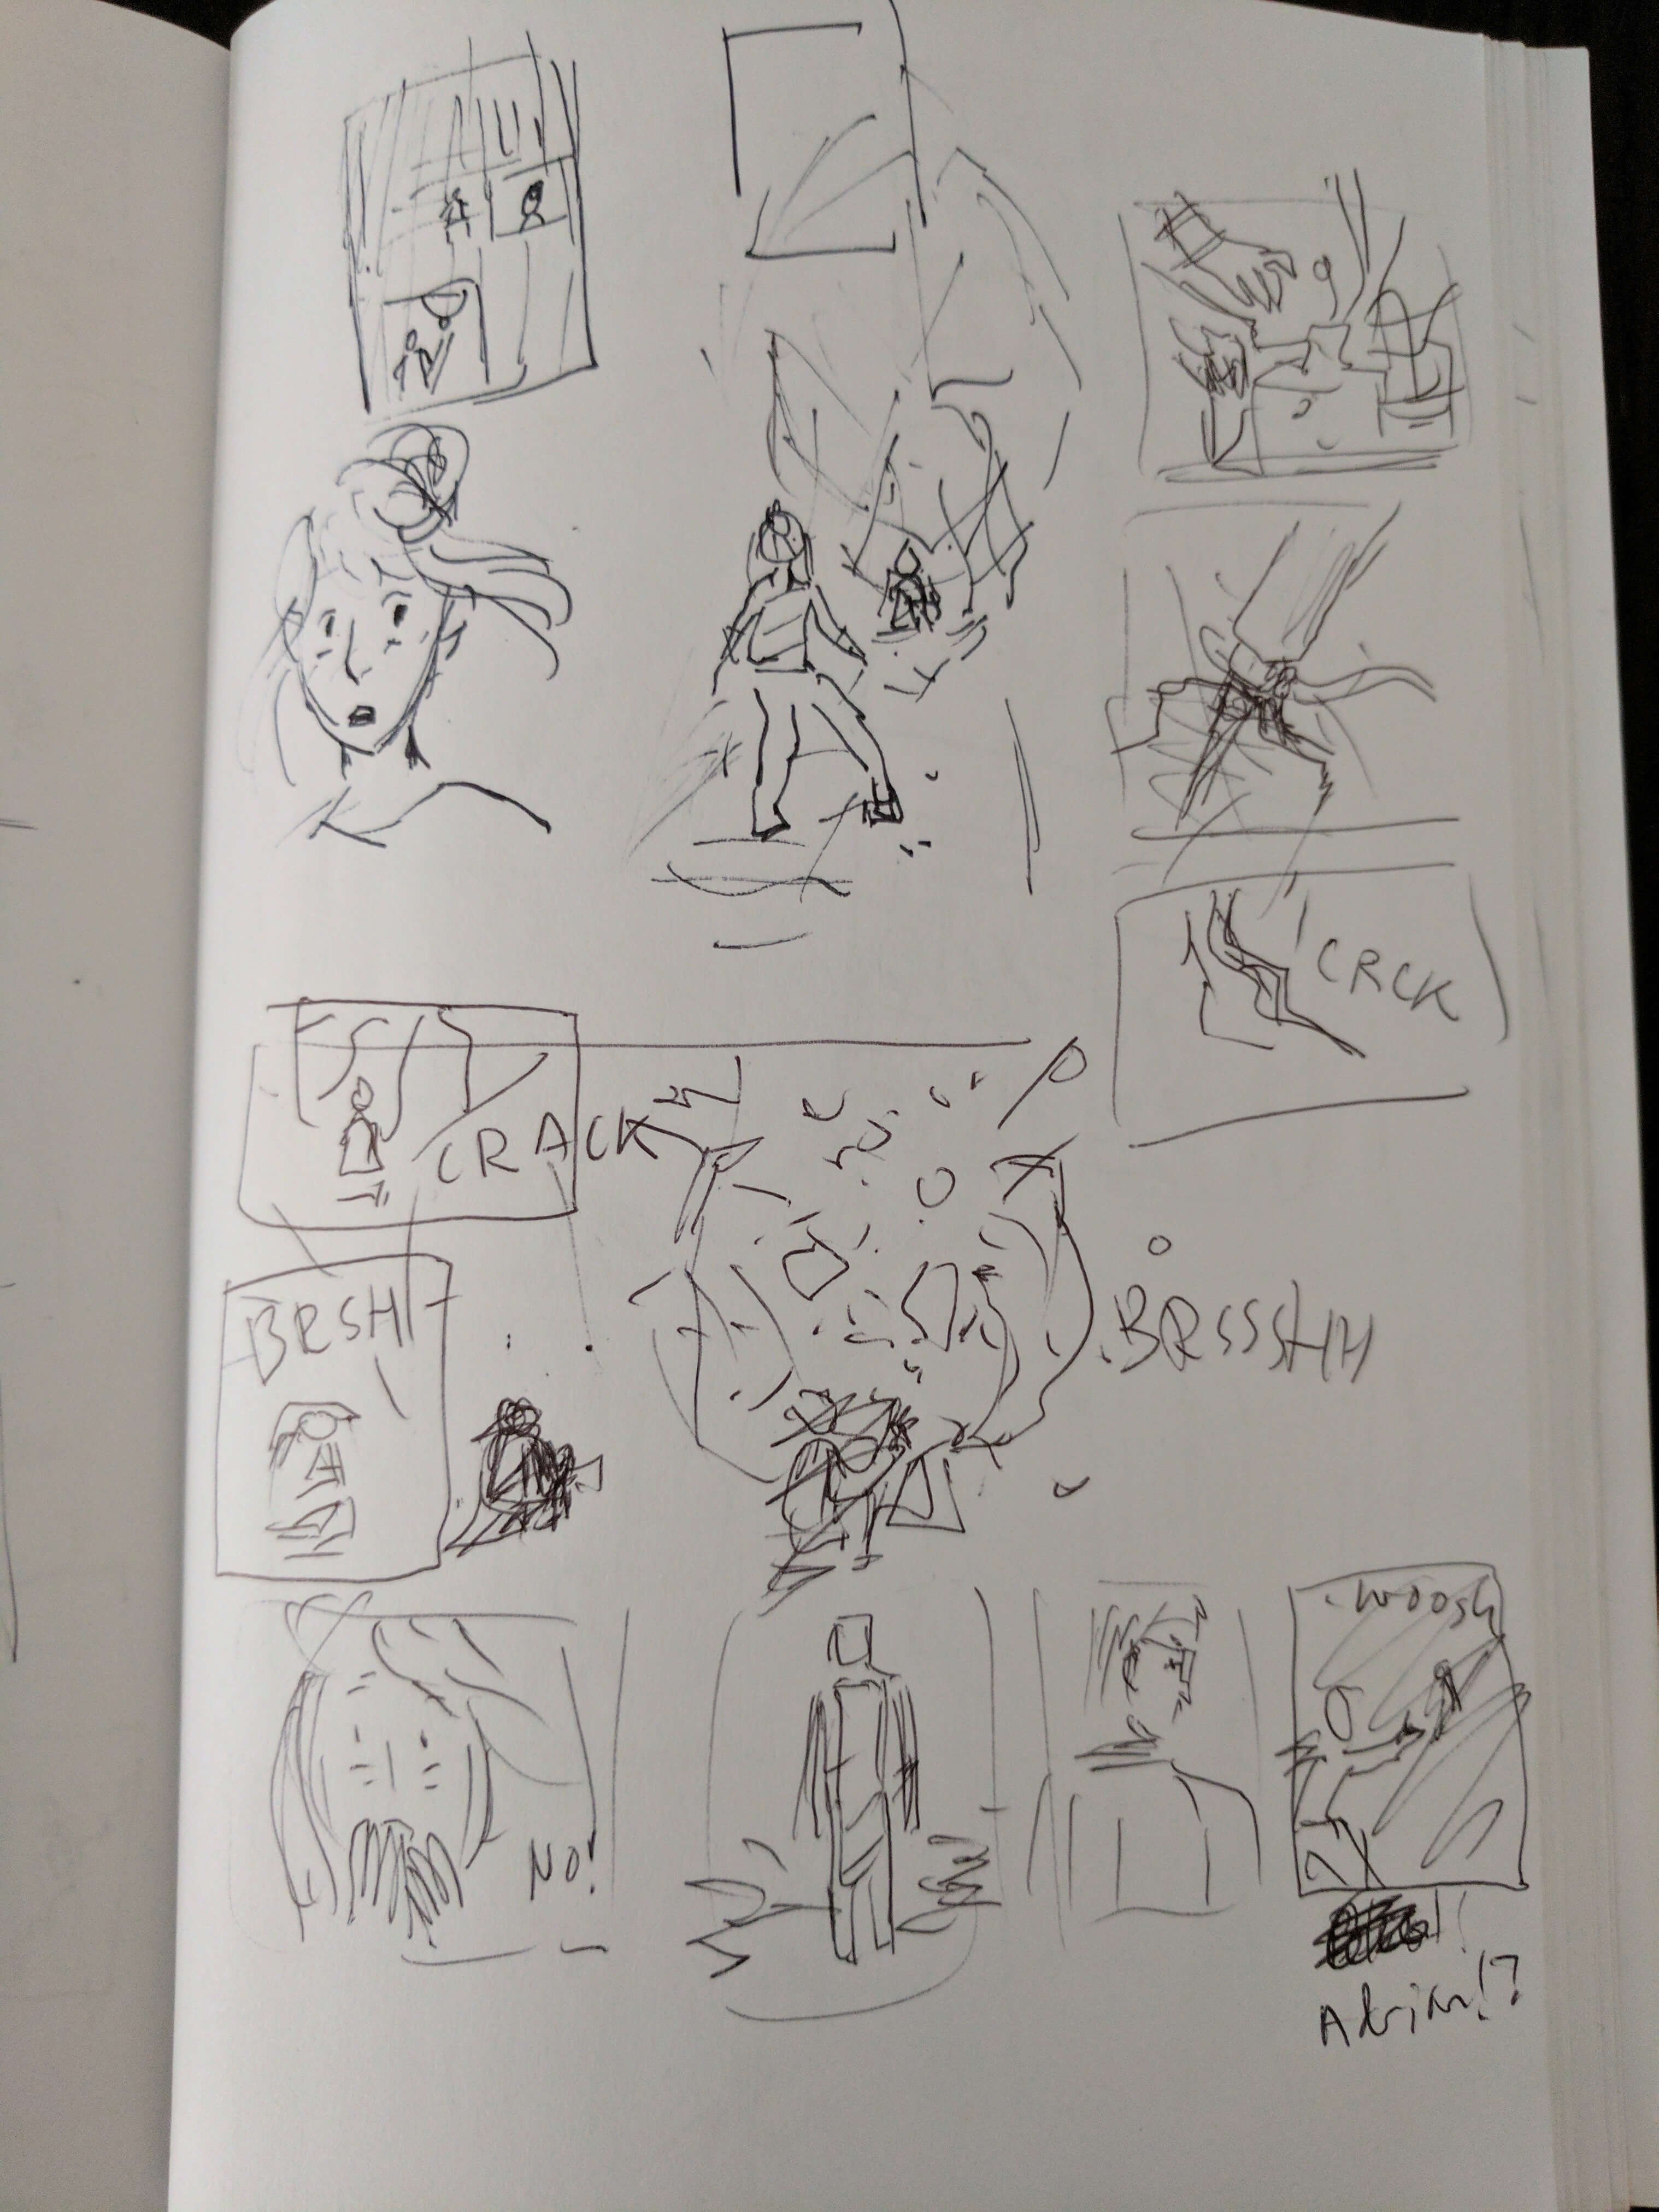 CRCK
CRACK
BRSH
BRSSSHH
WOOSH
NO!
Adrian!?